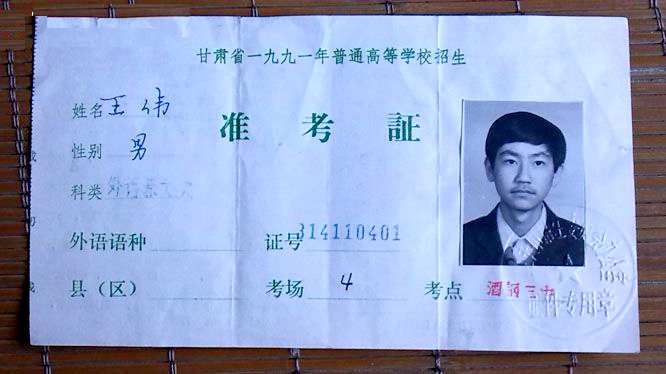 甘肃省一九九一年普通高等学校招生
准考証
姓名 王伟
性别 男
科类 外语兼文史
外语语种 证号 314110401
县（区） 考场 4 考点 酒钢三中
证件专用章